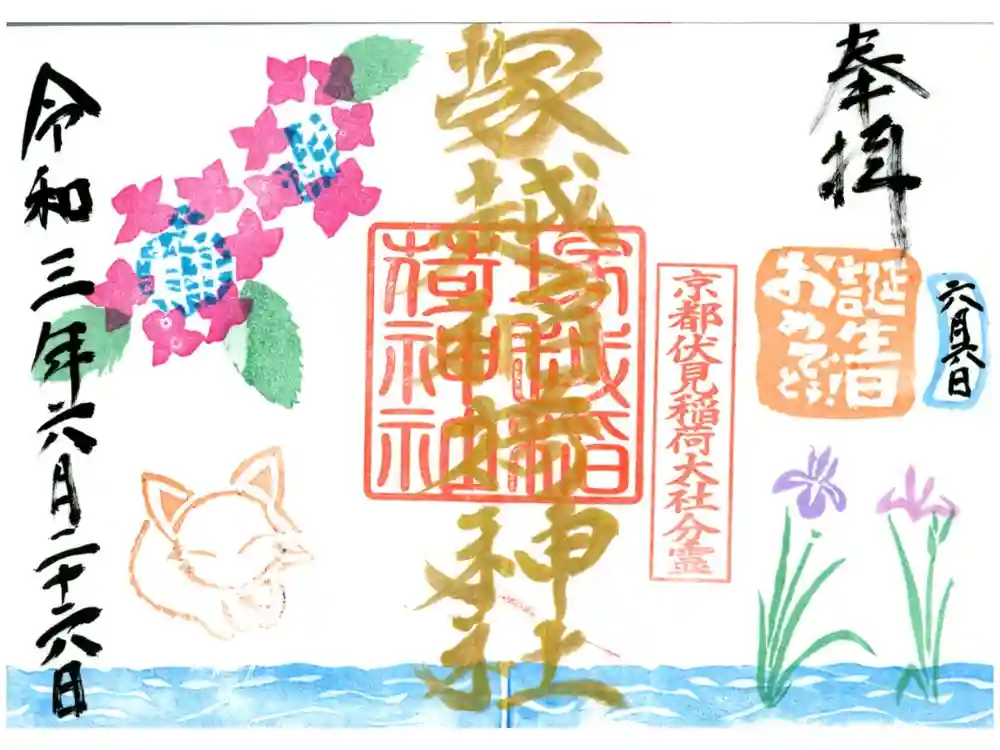 奉拝
六月六日
誕生日
おめで
とう!
京都伏見稲荷大社分霊
塚越稲荷神社
塚越稲
荷神社
令和三年六月二十六日